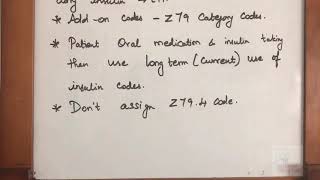 insulin
* Add-on codes - Z79 Category Codes.
* Patient Oral medication & insulin taking
then use long term (current) use of
insulin codes.
* Don't assign Z79.4 code.